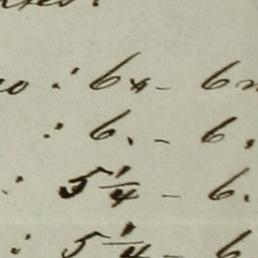 ∴ 6 x - 6
∴ 6. - 6.
∴ 5 1/4 - 6.
∴ 5 1/4 - 6